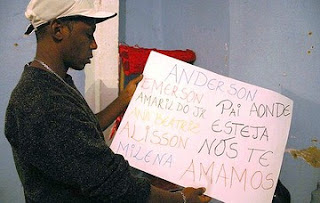 ANDERSON
EMERSON
AMARILDO JR
ANA BEATRIZ
ALISSON
MILENA
PAI AONDE
ESTEJA
NÓS TE
AMAMOS